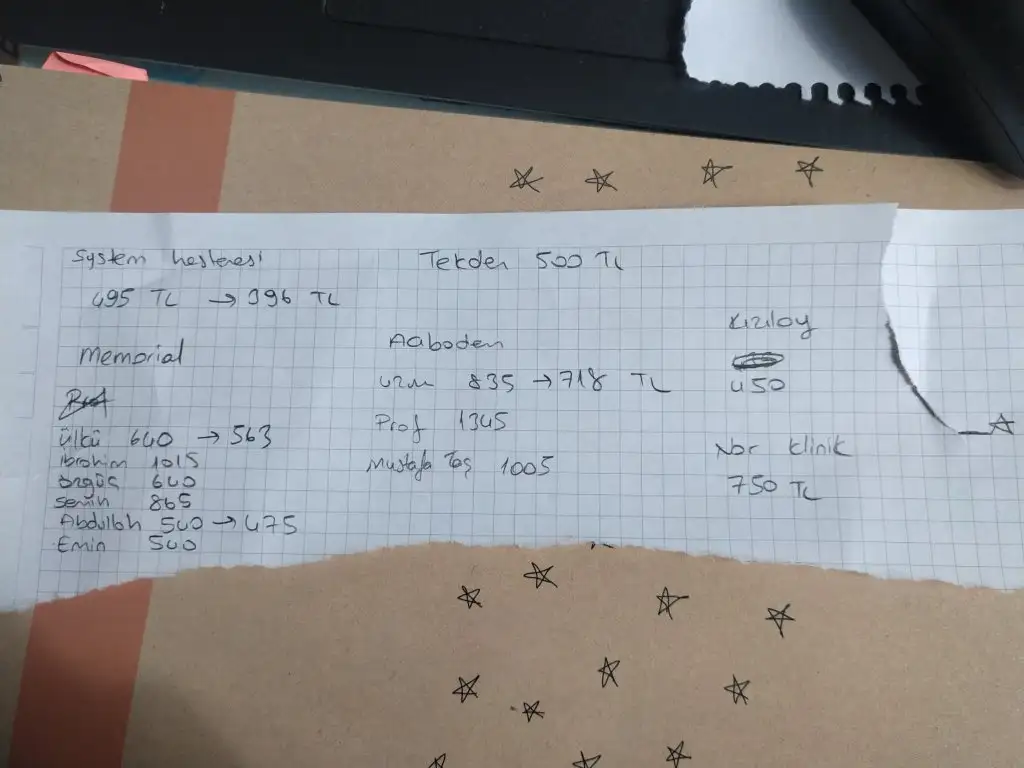 System hastanesi
495 TL → 396 TL
Tekden 500 TL
Memorial
Ülkü 640 → 563
İbrahim 1015
Özgüç 640
Semih 865
Abdullah 540 → 475
Emin 540
Acıbadem
uzm 835 → 718 TL
Prof 1345
Mustafa Taş 1005
Kızılay
450
Nar klinik
750 TL